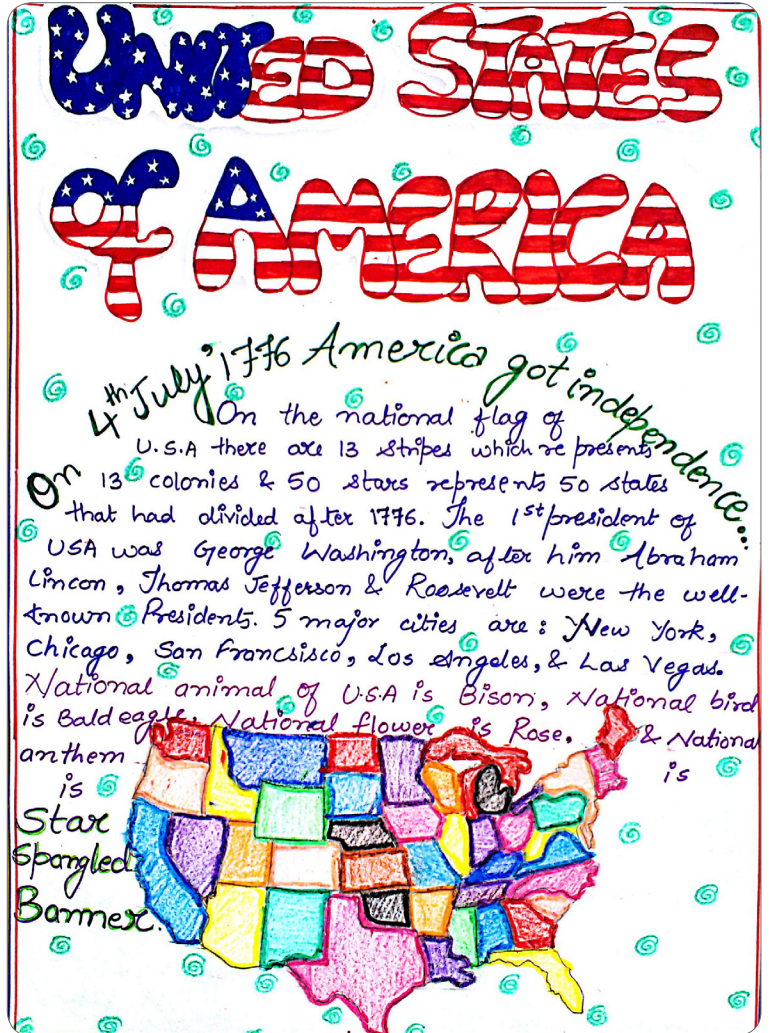 UNITED STATES
Of AMERICA
On 4th July' 1776 America got independence...
On the national flag of
U.S.A there are 13 stripes which represents
13 colonies & 50 stars represents 50 states
that had divided after 1776. The 1st president of
USA was George Washington, after him Abraham
Lincon, Thomas Jefferson & Roosevelt were the well-
known Presidents. 5 major cities are: New York,
Chicago, San Francsisco, Los Angeles, & Las Vegas.
National animal of U.S.A is Bison, National bird
is Bald eagle. National flower is Rose. & National
anthem is
is
Star
Spangled
Banner.